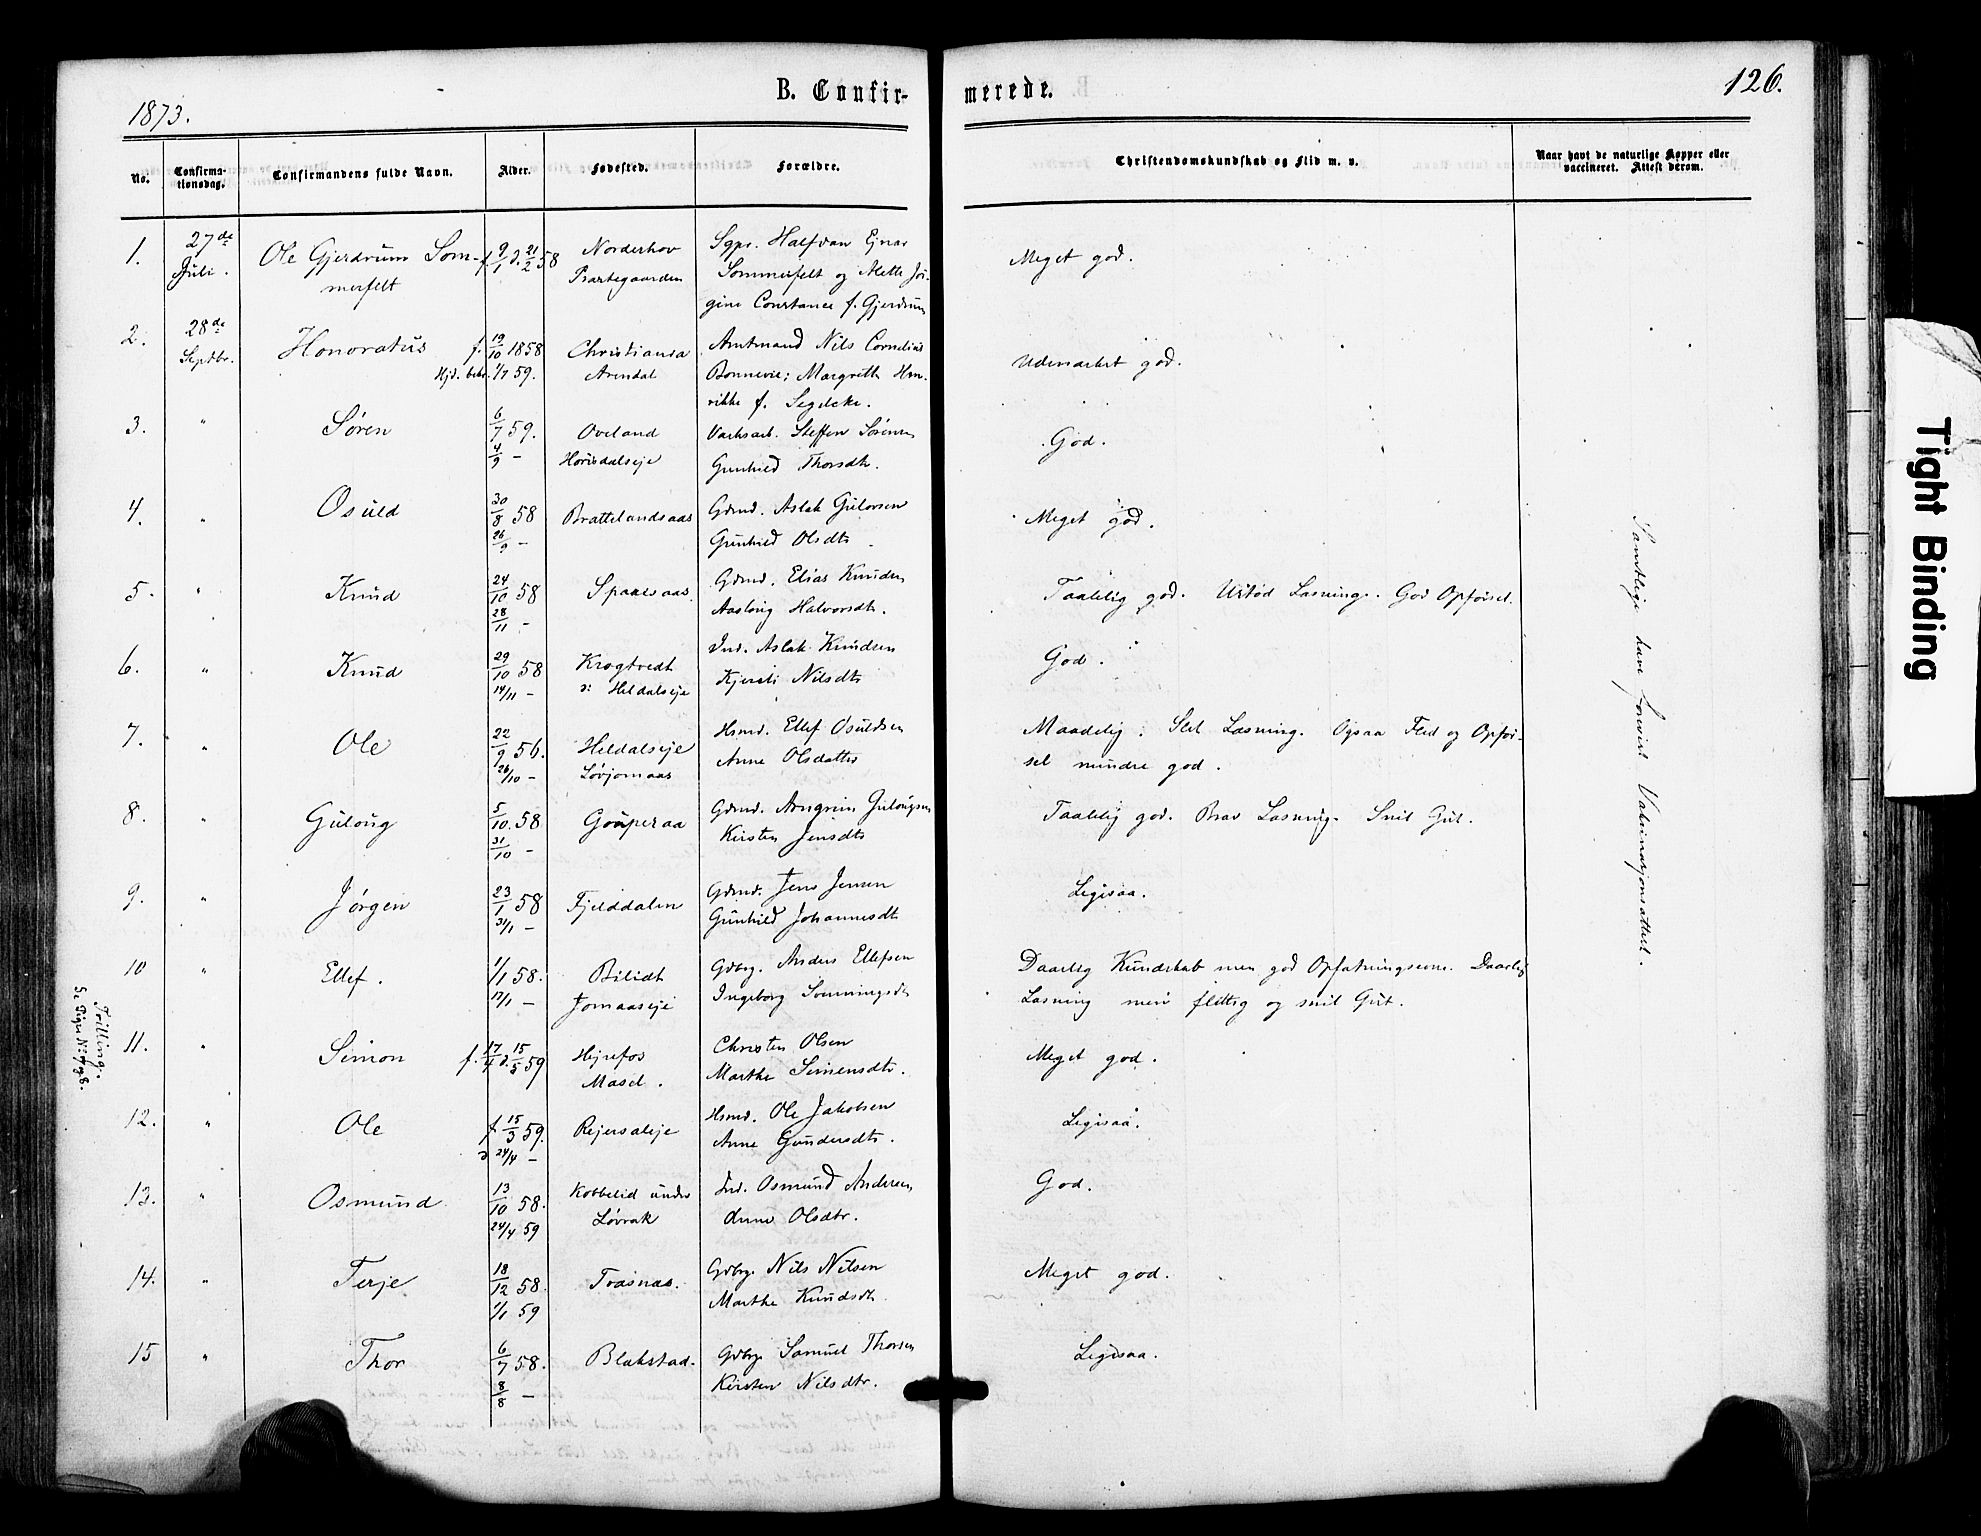 1873.
B. Confir-
merede.
126.
No.
Confirma-
tionsdag.
Confirmandens fulde Navn.
Alder.
Fødested.
Forældre.
Christendomskundskab og Flid m. v.
Naar havt de naturlige Kopper eller
vaccineret. Attest derom.
1. 27de Juli. Ole Gjerdrum Som-
merfelt
f. 9/1 d. 21/2 58
Norderhov
Præstegaarden
Sgpr. Halfdan Ejnar
Sommerfelt og Alette Jør-
gine Constance f. Gjerdrum
Meget god.
2. 28de Septbr. Honoratus
f. 19/10 1858
Hjd. bekr. 1/7 59.
Christiansa
Arendal
Amtmand Nils Cornelius
Bonnevie; Margrethe Hen-
rikke f. Segelcke.
Udemærket god.
3. " Søren
6/7 59.
4/9 -
Oveland
Hørisdalseje
Værksarb. Steffen Sørensen
Gunhild Thorsdtr.
God.
4. " Osuld
30/8 58
26/9 -
Brattelandsaas
Gdmd. Aslak Gulovsen
Gunhild Olsdtr
Meget god.
5. " Knud
24/10 58
28/11 -
Spaasaas
Gdmd. Elias Knudsen
Aasloug Halvorsdtr.
Taalelig god. Ustød Læsning. God Opførsel.
6. " Knud
29/10 58
14/11 -
Krogtvedt
v: Heldalseje
Ind. Aslak Knudsen
Kjersti Nilsdtr
God.
7. " Ole
22/9 56.
26/10 -
Heldalseje
Løvjomaas
Hsmd. Ellef Osuldsen
Anne Olsdatter
Maadelig. Slet Læsning. Ogsaa Flid og Opfør-
sel mindre god.
8. " Guloug
5/10. 58
31/10 -
Gouperaa
Gdmd. Arngrim Gulougsen
Kirsten Jensdtr
Taalelig god. Brav Læsning. Snil Gut.
9. " Jørgen
23/1 58
31/1 -
Fjelddalen
Gdmd. Jens Jensen
Gunhild Johannesdtr
Legisaa.
10 " Ellef.
1/1 58.
17/1 -
Bilidt
Jomaaseje
Gdbrg. Anders Ellefsen
Ingeborg Sonningsdtr
Daarlig Kundskab men god Opfatningsevne. Daarlig
Læsning men flittig og snil Gut.
Trilling.
Se Pige No: 7 og 8.
11. " Simon
f. 17/4 d. 15/5 59
Hejrefos
Masel.
Christen Olsen
Marthe Simensdtr.
Meget god.
12. " Ole
f 15/3 59.
d 24/4 -
Rejersøleje
Hsmd. Ole Jakobsen
Anne Gundersdtr.
Legisaa.
13. " Osmund
13/10 58.
24/4 59
Kobbelid under
Løvrak
Ind. Osmund Andersen
Anne Olsdtr.
God.
14. " Terje
18/12 58.
1/1 59
Traasnæs.
Gdbrg. Nils Nilsen
Marthe Knudsdtr.
Meget god.
15 " Thor
6/7 58.
8/8 -
Blakstad.
Gdbrg. Samuel Thorsen
Kirsten Nilsdtr.
Legisaa.
Samtlige have forevist Vakcinasjonsattest.
Tight Binding